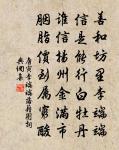 善和坊里李端端
信是能行白牡丹
誰信揚州金滿市
胭脂價到屬窮酸
唐寅李端端落籍圖詞